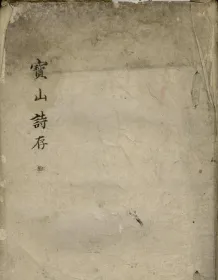 寶山詩存